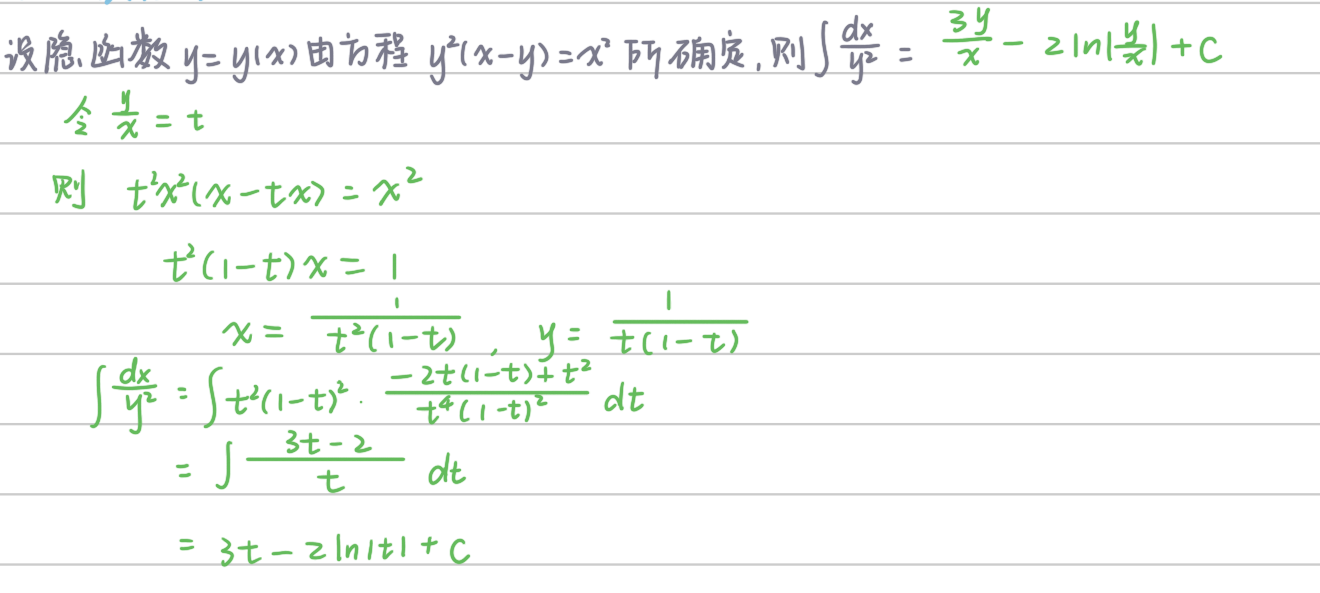 设隐函数 y=y(x) 由方程 y²(x-y)=x² 所确定,则∫dx/y² = 3y/x - 2ln|y/x| + C
令 y/x = t
则 t²x²(x-tx) = x²
t²(1-t)x = 1
x = 1/(t²(1-t)) , y = 1/(t(1-t))
∫dx/y² = ∫t²(1-t)² · (-2t(1-t)+t²)/(t⁴(1-t)²) dt
= ∫(3t-2)/t dt
= 3t - 2ln|t| + C